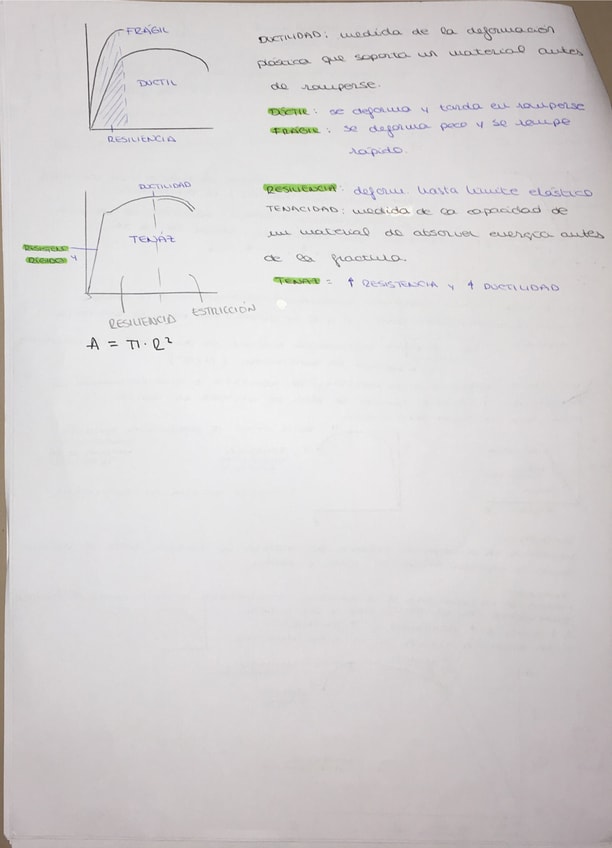 FRÁGIL
DÚCTIL
RESILIENCIA
DUCTILIDAD: medida de la deformación
plástica que soporta un material antes
de romperse.
DÚCTIL: se deforma y tarda en romperse
FRÁGIL: se deforma poco y se rompe
rápido.
DUCTILIDAD
TENÁZ
RESILIENCIA
ESTRICCIÓN
RESILIENCIA: deform. hasta límite elástico
TENACIDAD: medida de la capacidad de
un material de absorver energía antes
de la fractura.
TENAZ = ↑ RESISTENCIA y ↑ DUCTILIDAD
A = π · R²